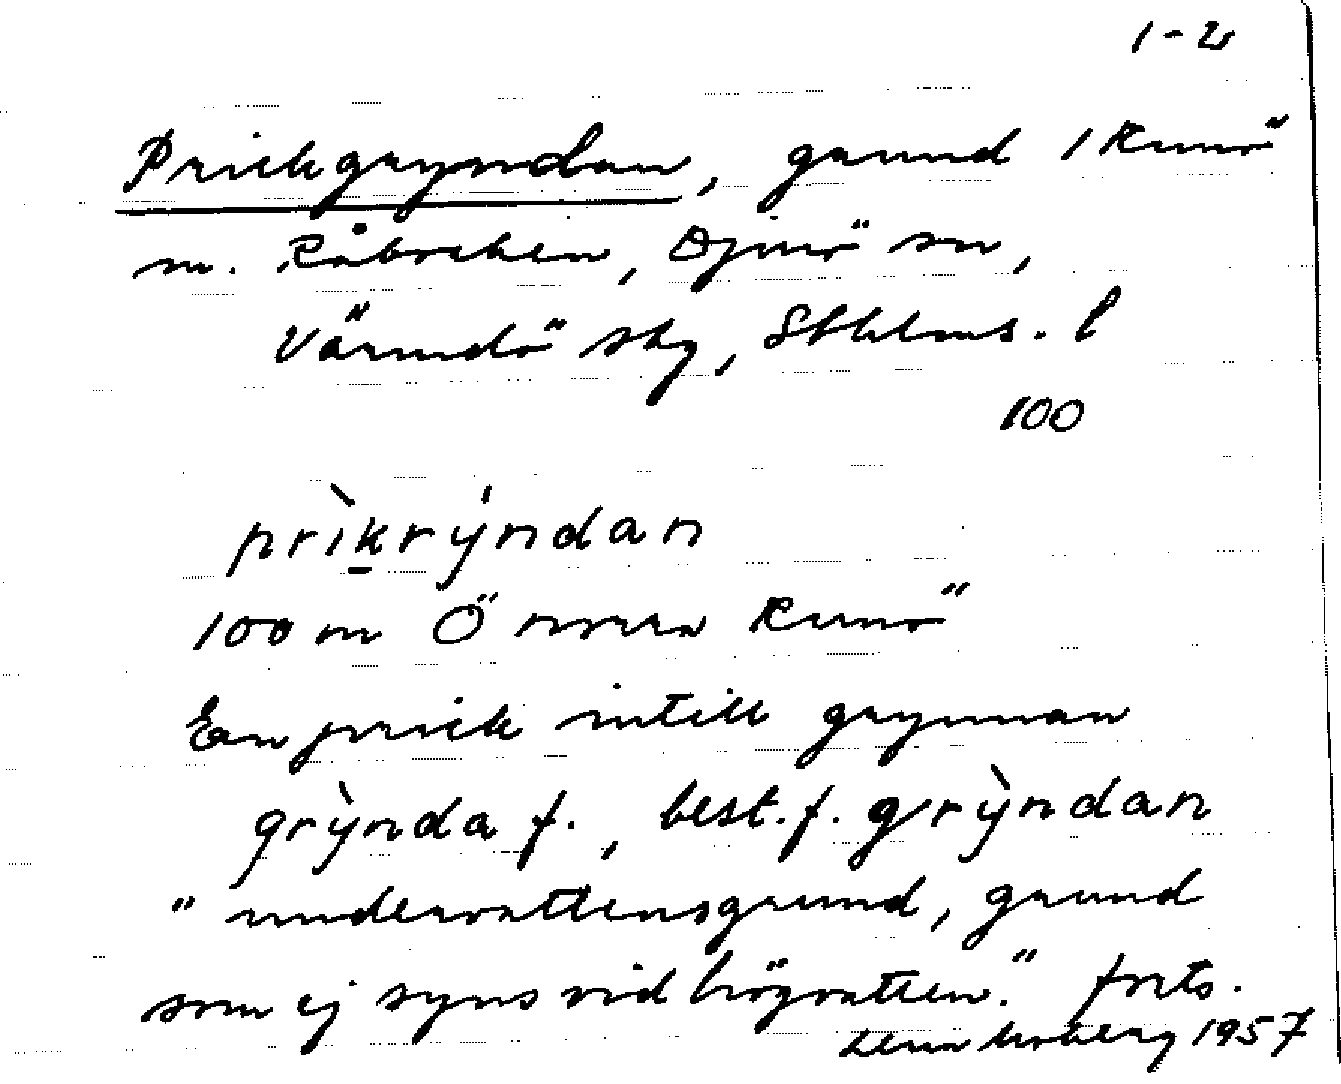 1-2
Prickgryndan, grund i Runö
m. Råbocken, Djurö sn,
Värmdö skg, Sthlms. l
100
prìkrýndan
100 m Ö norra Runö
En prick intill grynnan
grỳnda f., best.f. grỳndan
"undervattensgrund, grund
som ej syns vid högvatten." forts.
Lena Moberg 1957